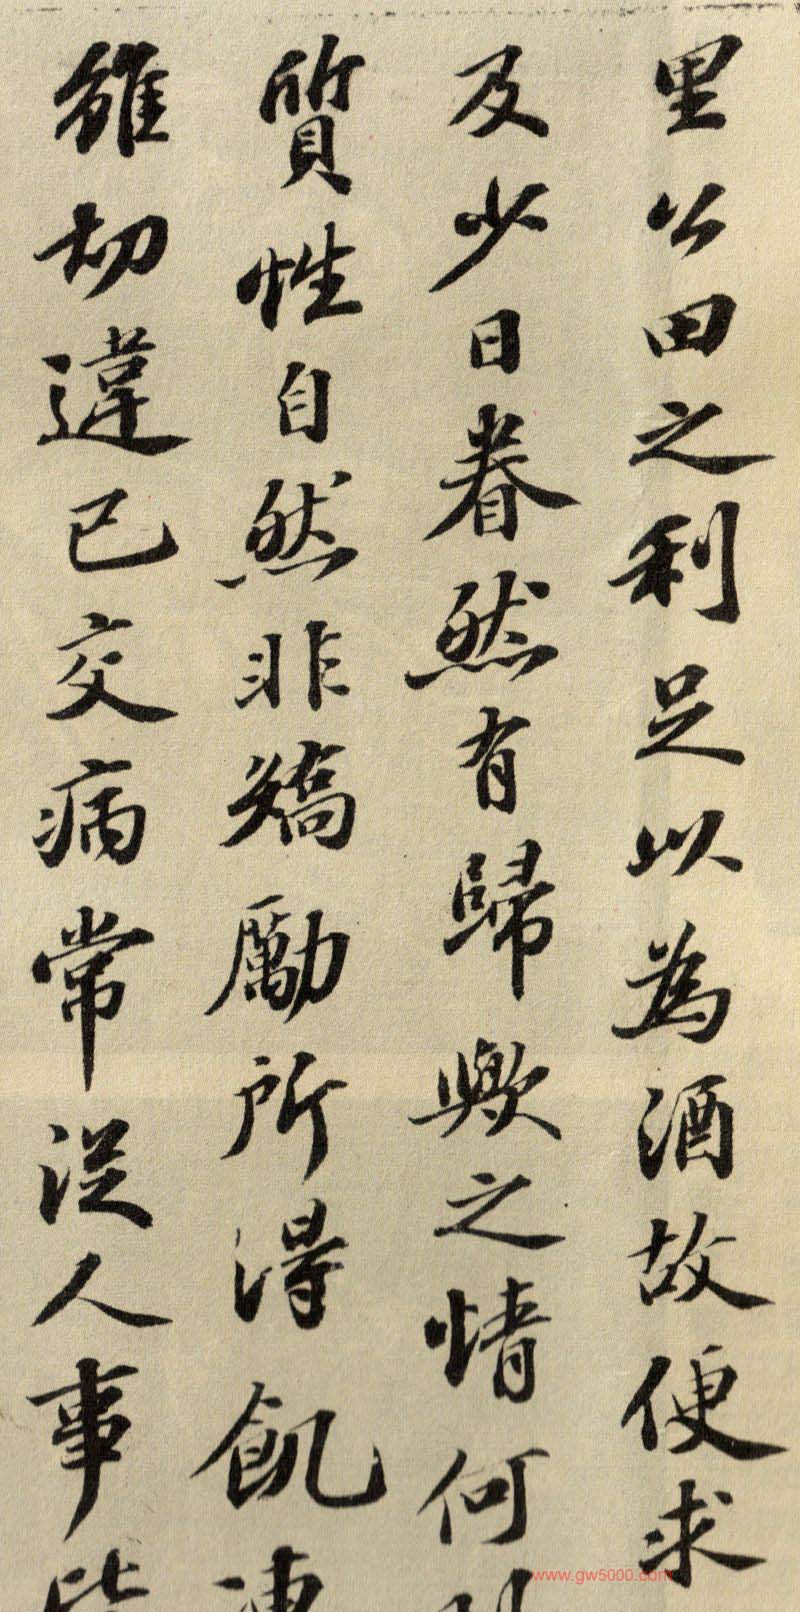 里公田之利足以為酒故便求
及少日眷然有歸歟之情何
質性自然非矯勵所得飢凍
雖切違已交病常從人事皆
www.gw5000.com